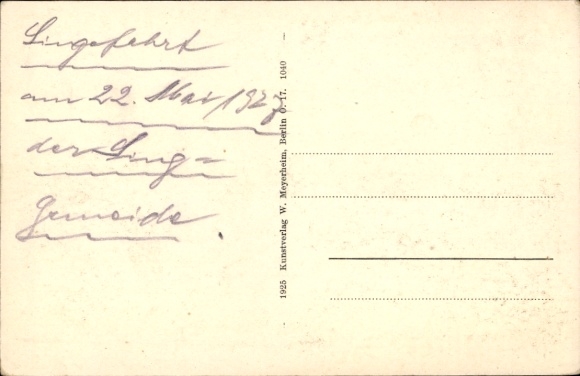 Singefahrt
am 22. Mai 1927
der Sing=
gemeide.
1925 Kunstverlag W. Meyerheim, Berlin O. 17. 1040